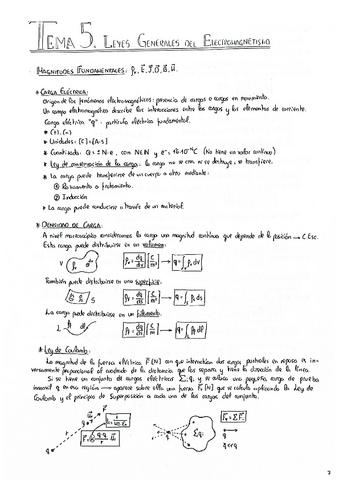 TEMA 5. LEYES GENERALES DEL ELECTROMAGNETISMO
MAGNITUDES FUNDAMENTALES:
* CARGA ELÉCTRICA:
Origen de los fenómenos electromagnéticos: presencia de cargas o cargas en movimiento.
El campo electromagnético describe las interacciones entre las cargas y los elementos de corriente.
Carga eléctrica "q": partícula eléctrica fundamental.
* (+), (-)
* Unidades: [C] = [A·s]
* Cuantizada: Q = ± N·e, con N∈ℕ y (No tiene un valor continuo)
* Ley de conservación de la carga: la carga no se crea ni se destruye, se transfiere.
* La carga puede transferirse de un cuerpo a otro mediante:
① Rozamiento o frotamiento.
② Inducción
* La carga puede conducirse a través de un material.
* DENSIDAD DE CARGA:
A nivel macroscópico consideramos la carga una magnitud continua que depende de la posición → C. Esc.
Esta carga puede distribuirse en un volumen:
V
También puede distribuirse en una superficie.
S
La carga puede distribuirse en un filamento.
L
* Ley de Coulomb:
La magnitud de la fuerza eléctrica F [N] con que interactúan dos cargas puntuales en reposo es in-
versamente proporcional al cuadrado de la distancia que las separa y tiene la dirección de la línea.
Si se tiene un conjunto de cargas eléctricas Σ qi y se coloca una pequeña carga de prueba
inmóvil q en esa región → aparece sobre ella una fuerza [N] que se calcula aplicando la Ley de
Coulomb y el principio de Superposición a cada una de las cargas del conjunto.
Σqi
q
7